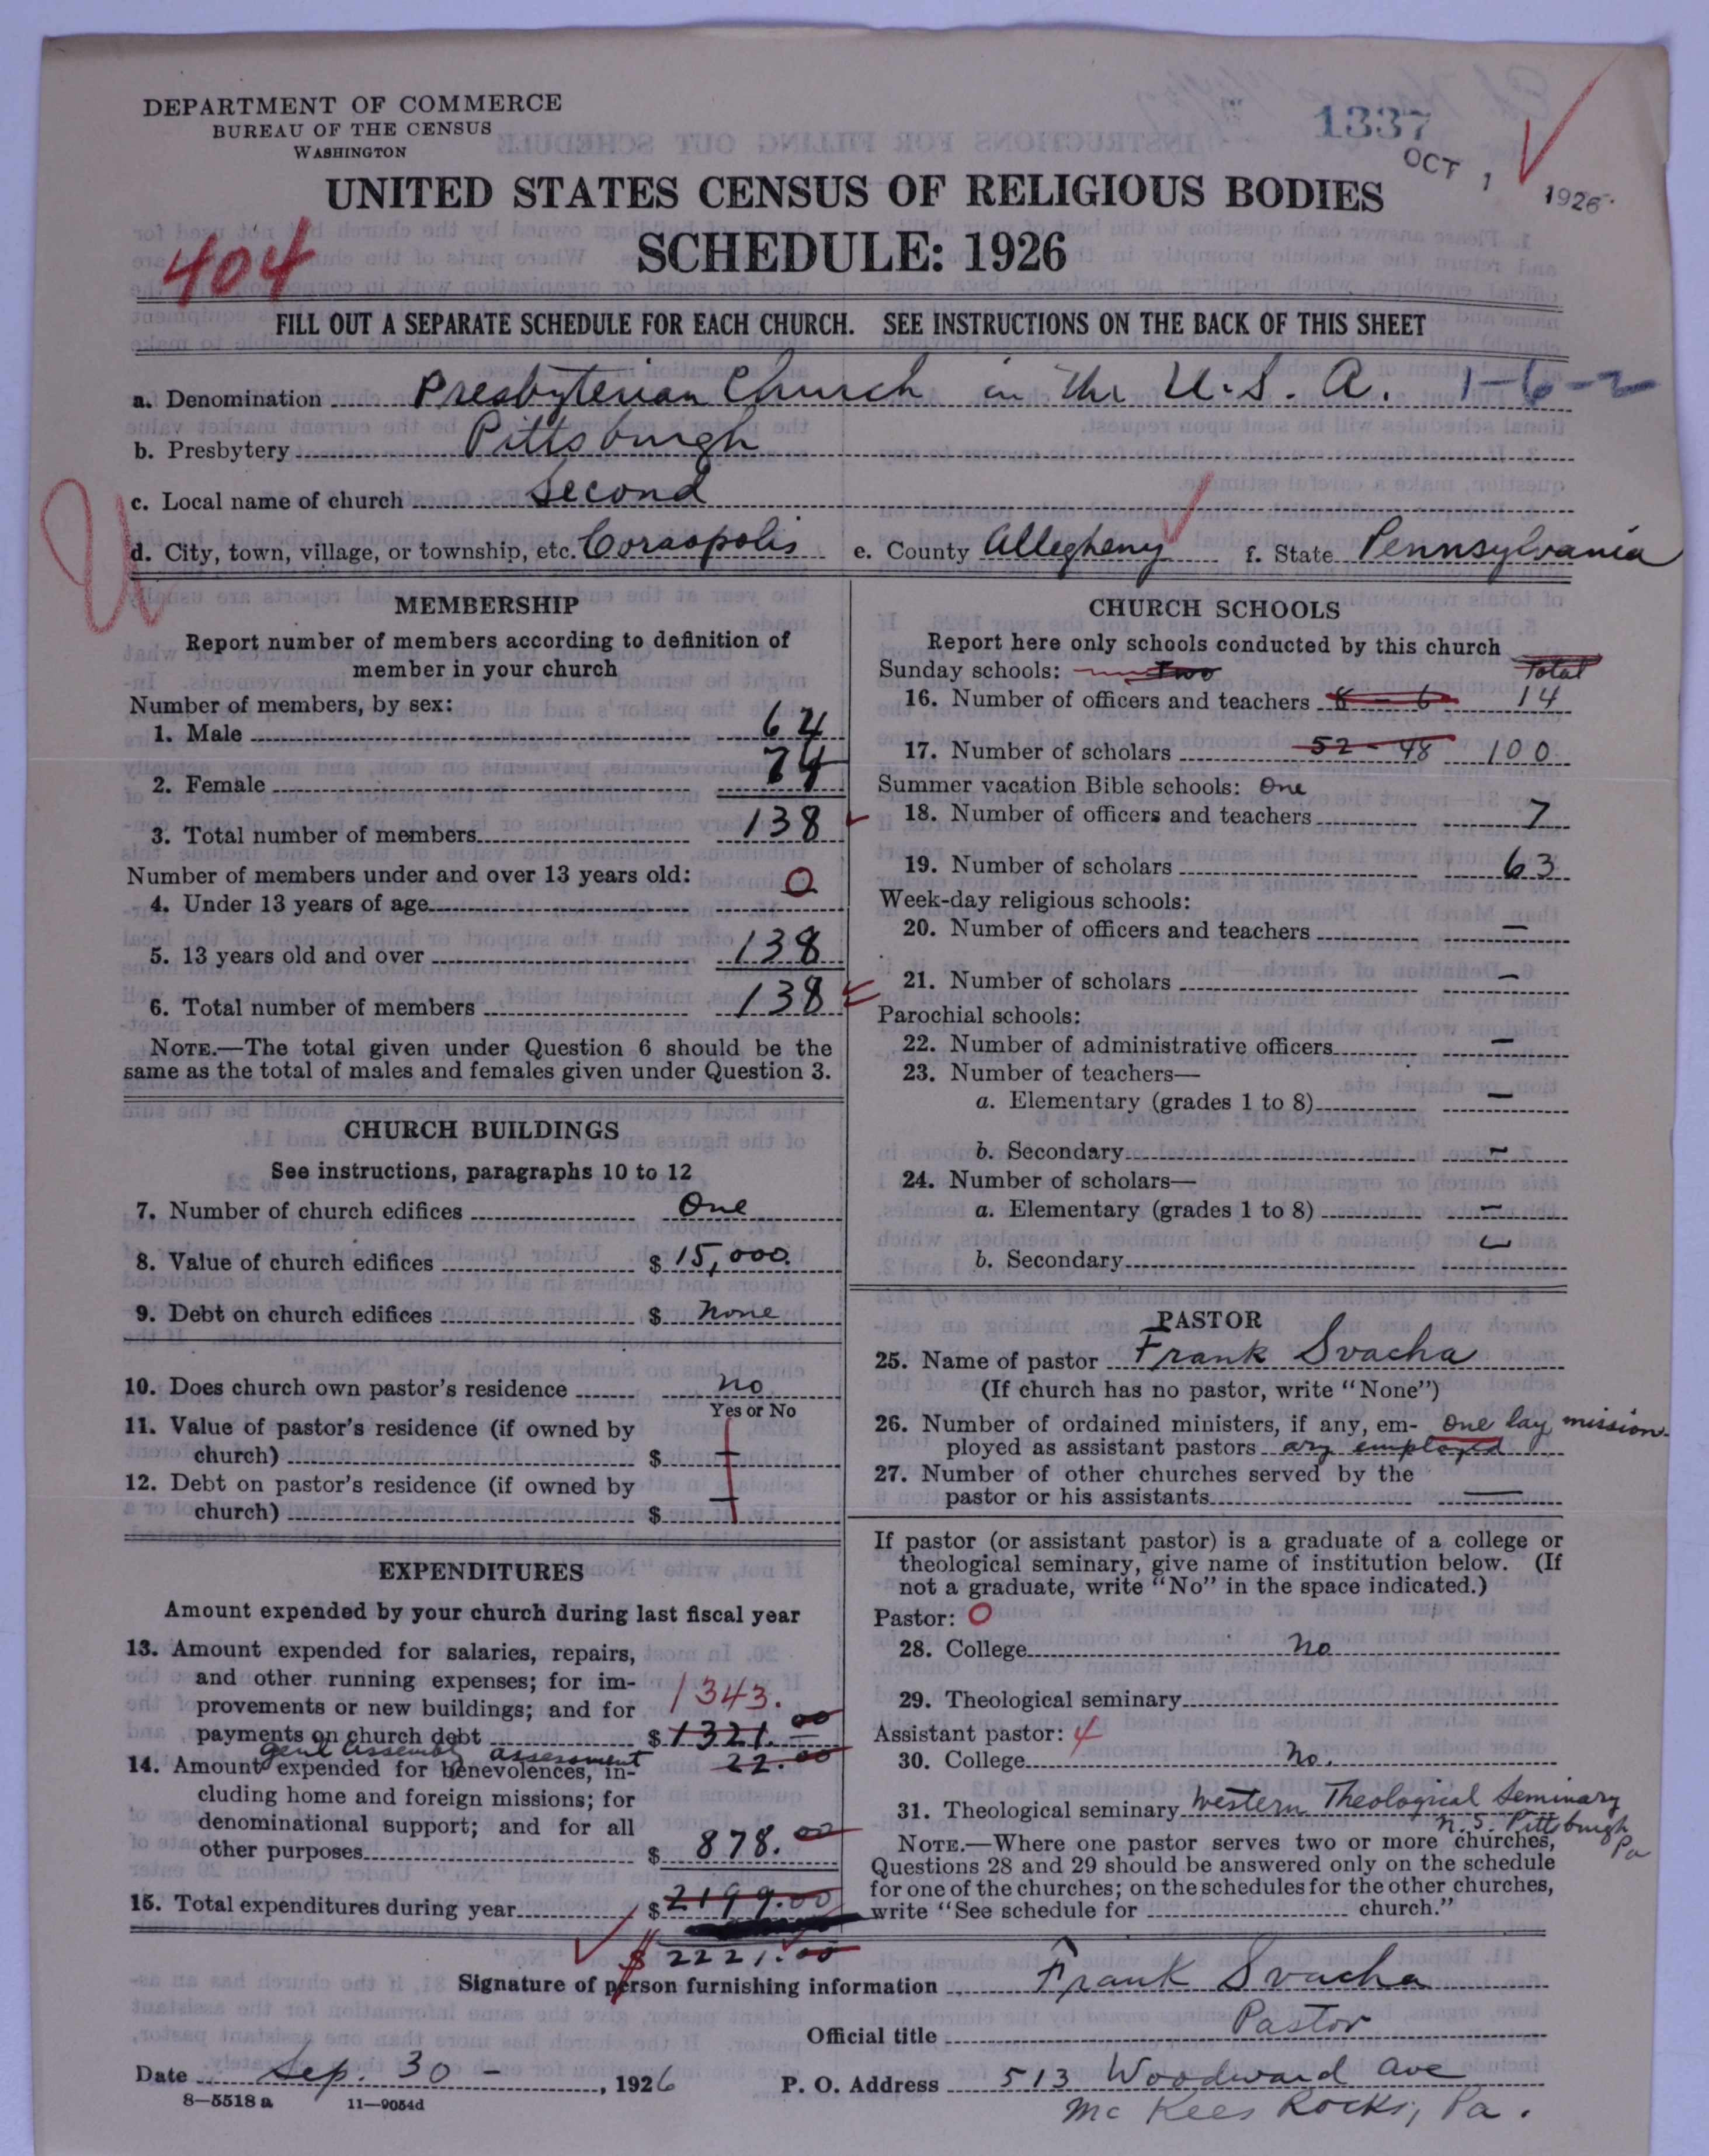 DEPARTMENT OF COMMERCE
BUREAU OF THE CENSUS
WASHINGTON
1337
OCT 1 1926
UNITED STATES CENSUS OF RELIGIOUS BODIES
SCHEDULE: 1926
404
FILL OUT A SEPARATE SCHEDULE FOR EACH CHURCH. SEE INSTRUCTIONS ON THE BACK OF THIS SHEET
a. Denomination Presbyterian Church in the U.S.A. 1-6-2
b. Presbytery Pittsburgh
c. Local name of church Second
d. City, town, village, or township, etc. Coraopolis e. County Allegheny f. State Pennsylvania
MEMBERSHIP
Report number of members according to definition of
member in your church
Number of members, by sex:
1. Male 64
2. Female 74
3. Total number of members 138
Number of members under and over 13 years old:
4. Under 13 years of age 0
5. 13 years old and over 138
6. Total number of members 138
NOTE.—The total given under Question 6 should be the
same as the total of males and females given under Question 3.
CHURCH BUILDINGS
See instructions, paragraphs 10 to 12
7. Number of church edifices One
8. Value of church edifices $ 15,000.
9. Debt on church edifices $ none
10. Does church own pastor's residence no
Yes or No
11. Value of pastor's residence (if owned by
church) $
12. Debt on pastor's residence (if owned by
church) $
EXPENDITURES
Amount expended by your church during last fiscal year
13. Amount expended for salaries, repairs,
and other running expenses; for im-
provements or new buildings; and for 1343.
payments on church debt $ 1321.00
Genl Assembly assessment 22.00
14. Amount expended for benevolences, in-
cluding home and foreign missions; for
denominational support; and for all
other purposes $ 878.00
15. Total expenditures during year $ 2199.00
$ 2221.00
CHURCH SCHOOLS
Report here only schools conducted by this church
Sunday schools: two Total
16. Number of officers and teachers 8 - 6 14
17. Number of scholars 52 - 48 100
Summer vacation Bible schools: One
18. Number of officers and teachers 7
19. Number of scholars 63
Week-day religious schools:
20. Number of officers and teachers —
21. Number of scholars —
Parochial schools:
22. Number of administrative officers —
23. Number of teachers—
a. Elementary (grades 1 to 8) —
b. Secondary —
24. Number of scholars—
a. Elementary (grades 1 to 8) —
b. Secondary —
PASTOR
25. Name of pastor Frank Svacha
(If church has no pastor, write "None")
26. Number of ordained ministers, if any, em- One lay mission-
ployed as assistant pastors ary employed
27. Number of other churches served by the
pastor or his assistants —
If pastor (or assistant pastor) is a graduate of a college or
theological seminary, give name of institution below. (If
not a graduate, write "No" in the space indicated.)
Pastor: 0
28. College No
29. Theological seminary
Assistant pastor: 4
30. College No.
31. Theological seminary Western Theological Seminary
N.S. Pittsburgh
Pa
NOTE.—Where one pastor serves two or more churches,
Questions 28 and 29 should be answered only on the schedule
for one of the churches; on the schedules for the other churches,
write "See schedule for church."
Signature of person furnishing information Frank Svacha
Official title Pastor
Date Sep. 30 -, 1926 P. O. Address 513 Woodward Ave
8—5518 a 11—9054d Mc Kees Rocks, Pa.